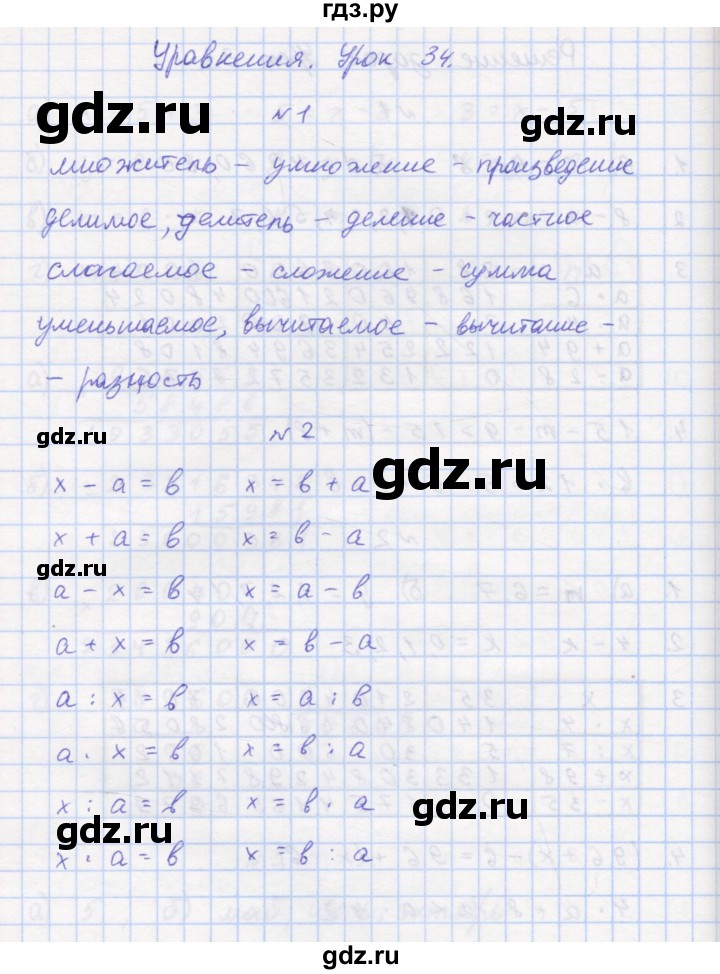 гдз.ру
Уравнения. Урок 34.
gdz.ru
№1
gdz.ru
множитель – умножение – произведение
делимое, делитель – деление – частное
слагаемое – сложение – сумма
уменьшаемое, вычитаемое – вычитание –
– разность
gdz.ru
№2
gdz.ru
x – a = в x = в + a
x + a = в x = в – a
gdz.ru
a – x = в x = a – в
a + x = в x = в – a
a : x = в x = a : в
a · x = в x = в : a
x : a = в x = в · a
gdz.ru
gdz.ru
x · a = в x = в : a
gdz.ru